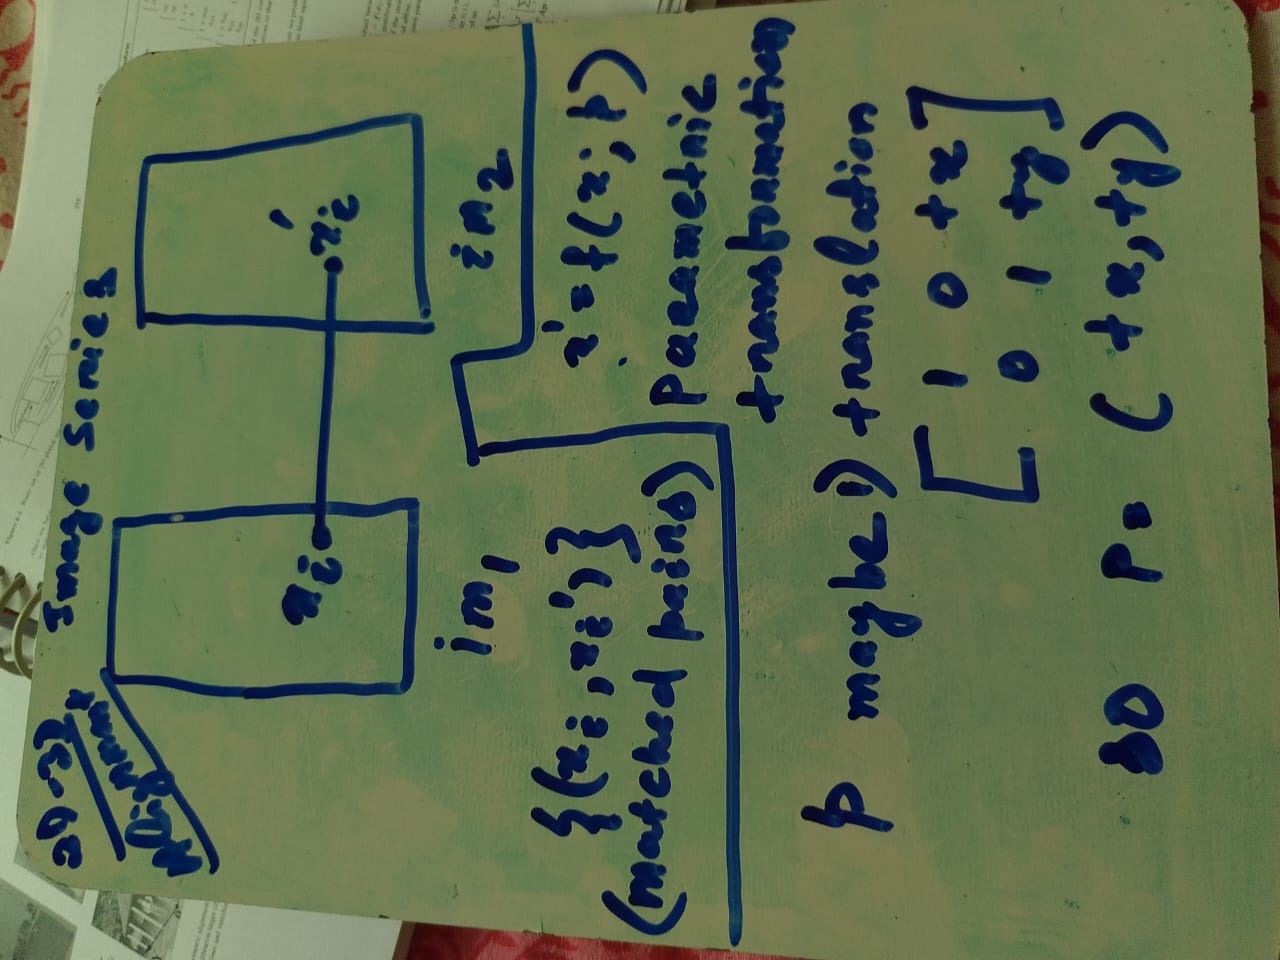 2D-2D
Alignment
Image Series
xi
xi'
im1
im2
{(xi, xi')}
(matched pairs)
x' = f(x; p)
parametric
transformation
p maybe) translation
[1 0 tx
0 1 ty]
so p = (tx, ty)